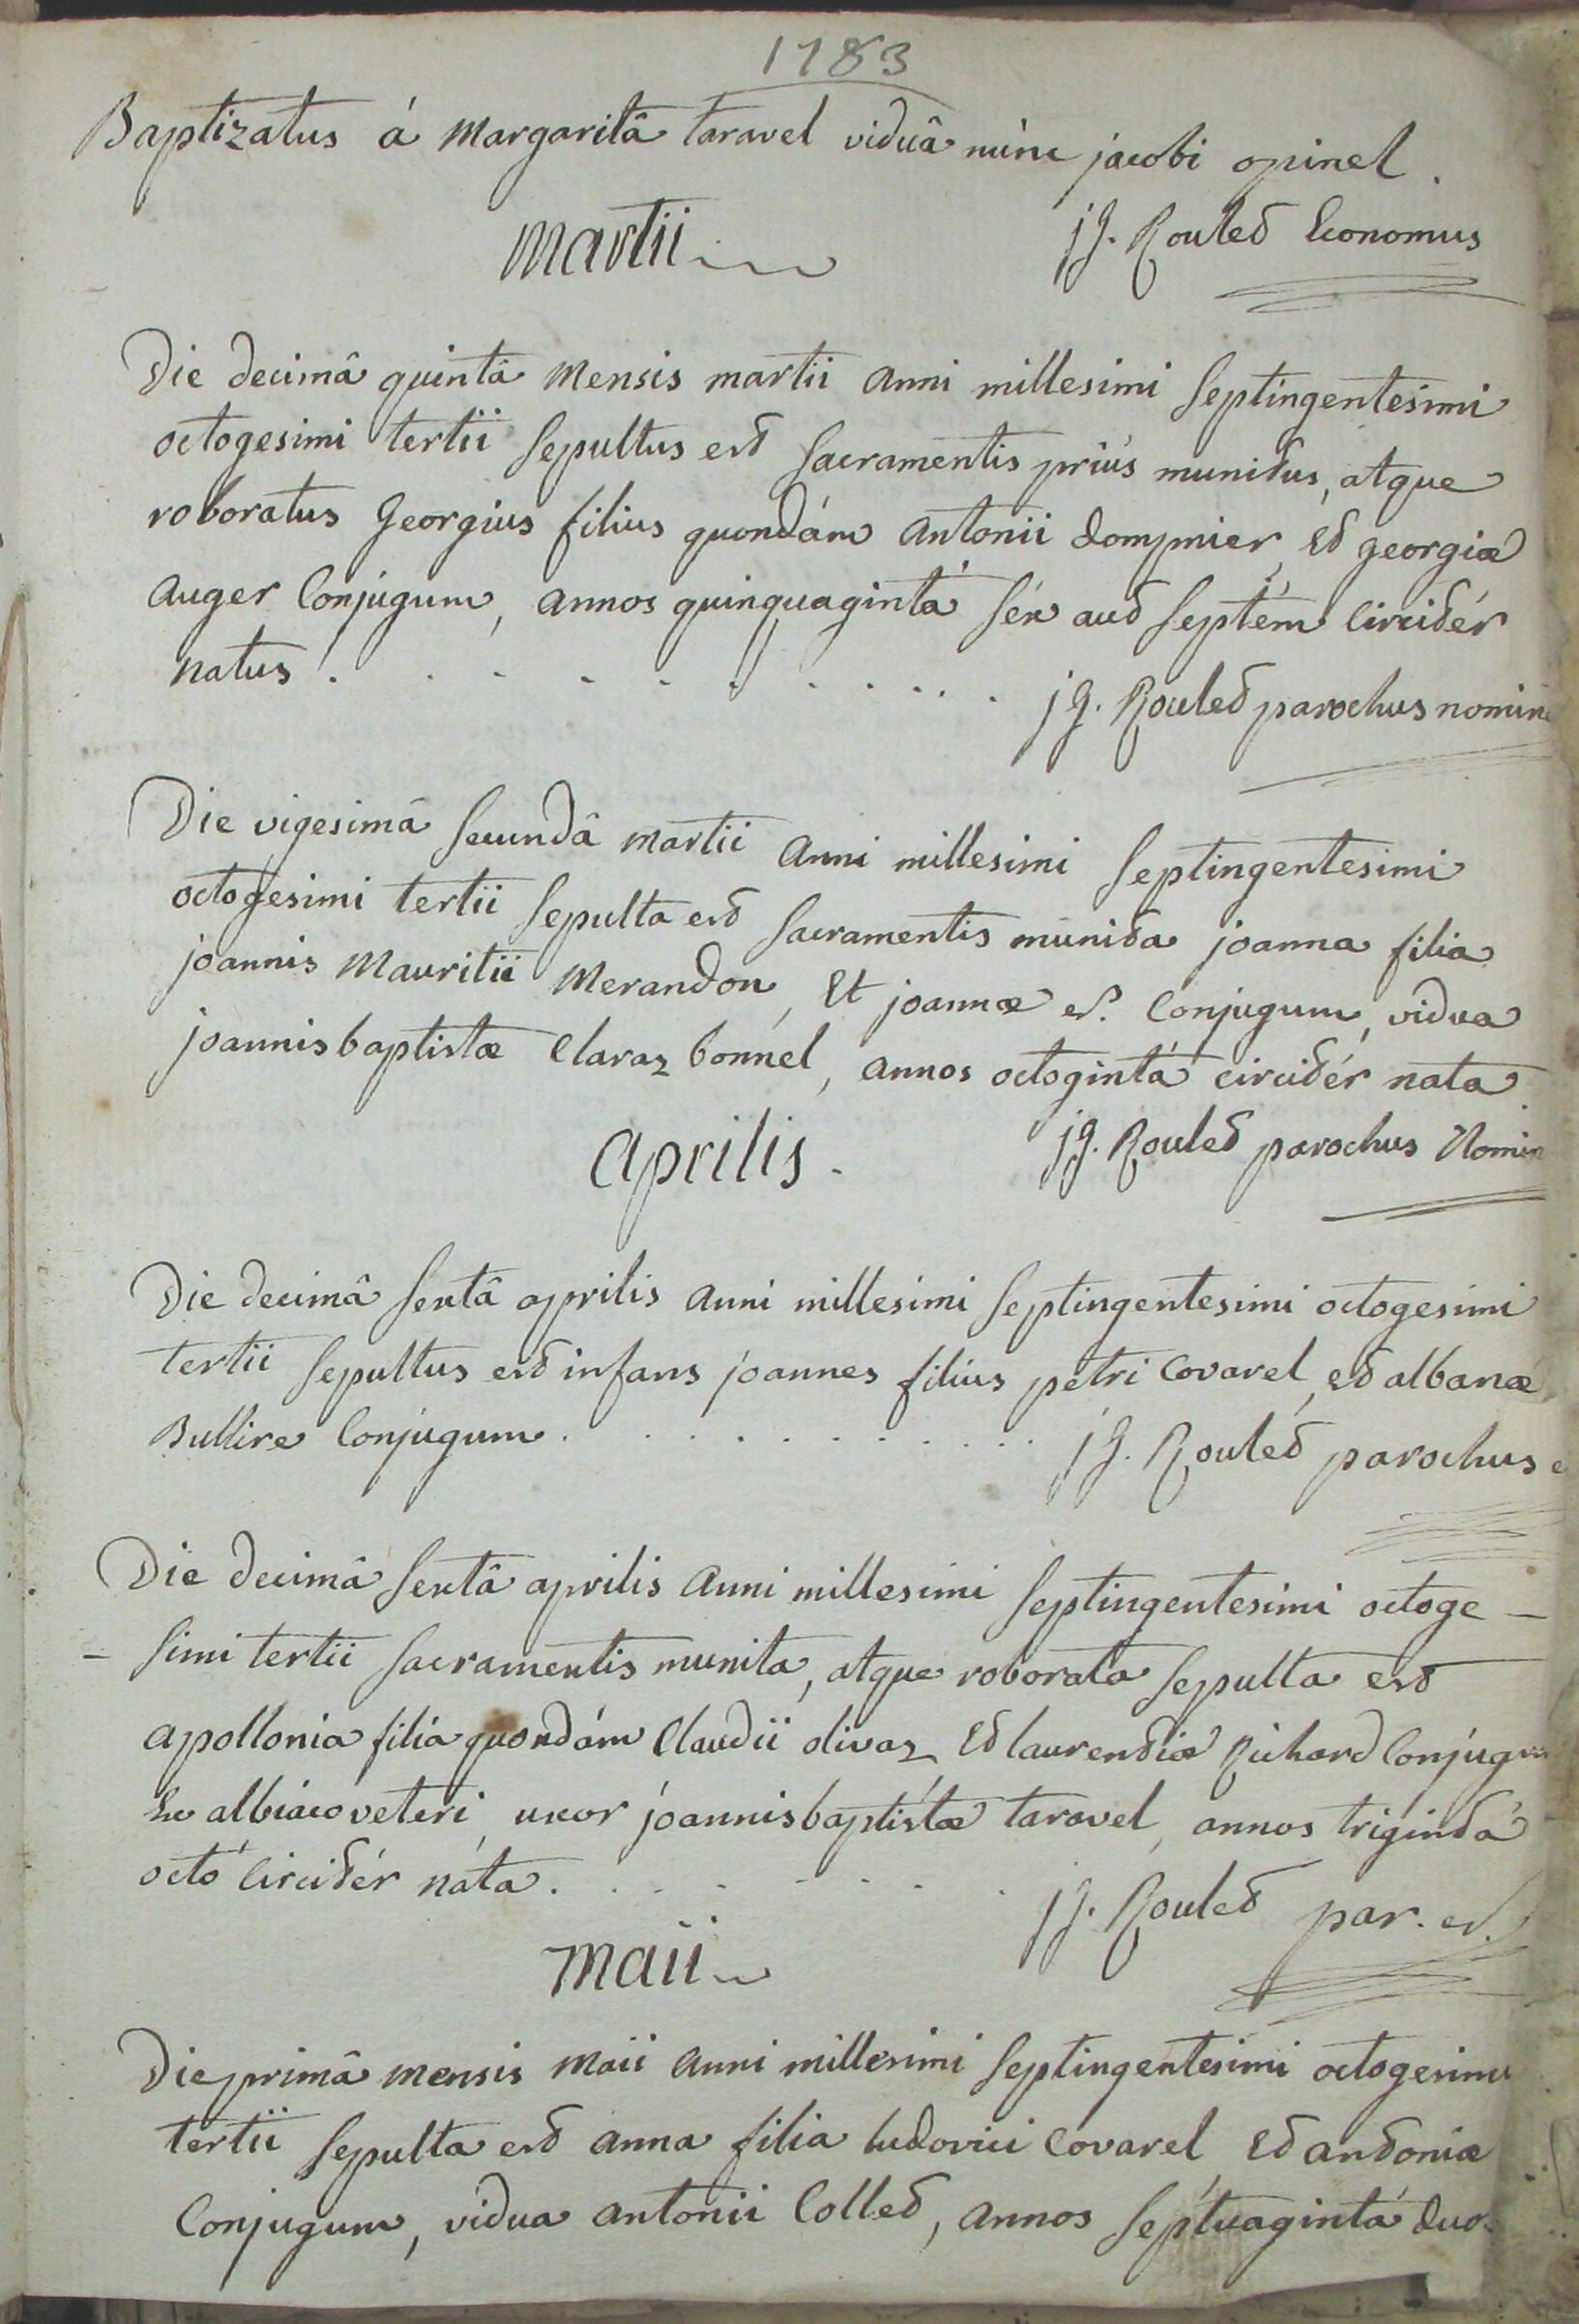 1783
Baptizatus á Margaritâ taravel viduâ núnc jacobi opinel.
Martii
jg. Roulet Economus
Die decimâ quintâ Mensis martii anni millesimi Septingentesimi
octogesimi tertii Sepultus est Sacramentis priús munitus, atque
roboratus Georgius filius quondám antonii dompnier, et georgiæ
auger Conjugum, annos quinquagintá séx aut septém circitér
natus.
jg. Roulet parochus nomin
Die vigesimâ Secundâ martii anni millesimi Septingentesimi
octogesimi tertii Sepulta est Sacramentis munita joanna filia
joannis Mauritii Merandon, Et joannæ et. Conjugum, vidua
joannisbaptistæ Claraz bonnel, annos octogintá circitér nata
jg. Roulet parochus Nomin
aprilis.
Die decimâ sextâ aprilis anni millesimi Septingentesimi octogesimi
tertii Sepultus est infans joannes filius petri Covarel, et albanæ
Bullire Conjugum.
jg. Roulet parochus
Die decimâ sextâ aprilis anni millesimi Septingentesimi octoge-
-simi tertii Sacramentis munita, atque roborata Sepulta est
apollonia filia quondám Claudii olivaz, et laurentiæ Richard Conjugum
albiaco veteri, uxor joannisbaptistæ taravel, annos trigintá
octó circitér náta.
jg. Roulet par. et.
maii
Die primâ mensis maii anni millesimi Septingentesimi octogesimi
tertii Sepulta est anna filia ludovici Covarel et antoniæ
Conjugum, vidua antonii Collet, annos Séptuagintá duo